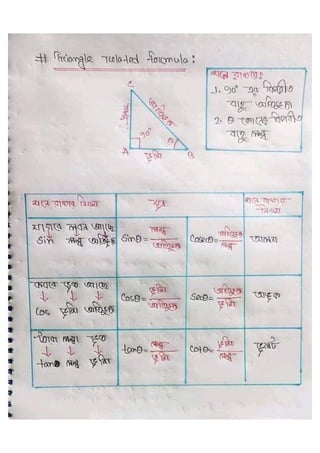 # Triangle related formula:
মনে রাখবে:
1. 90° এর বিপরীত
বাহু অতিভুজ
2. θ কোনের বিপরীত
বাহু লম্ব
C
লম্ব
অতিভুজ
90°
θ
A
ভূমি
B
মনে রাখার বিষয়
সূত্র
মনে রাখার বিষয়
সাগরে লবন আছে
sin লম্ব অতিভুজ
sinθ = লম্ব / অতিভুজ
Cosecθ = অতিভুজ / লম্ব
কবরে ভূত আছে
cos ভূমি অতিভুজ
Cosθ = ভূমি / অতিভুজ
Secθ = অতিভুজ / ভূমি
ট্যারা লম্বা ভূত
tanθ লম্ব ভূমি
tanθ = লম্ব / ভূমি
Cotθ = ভূমি / লম্ব